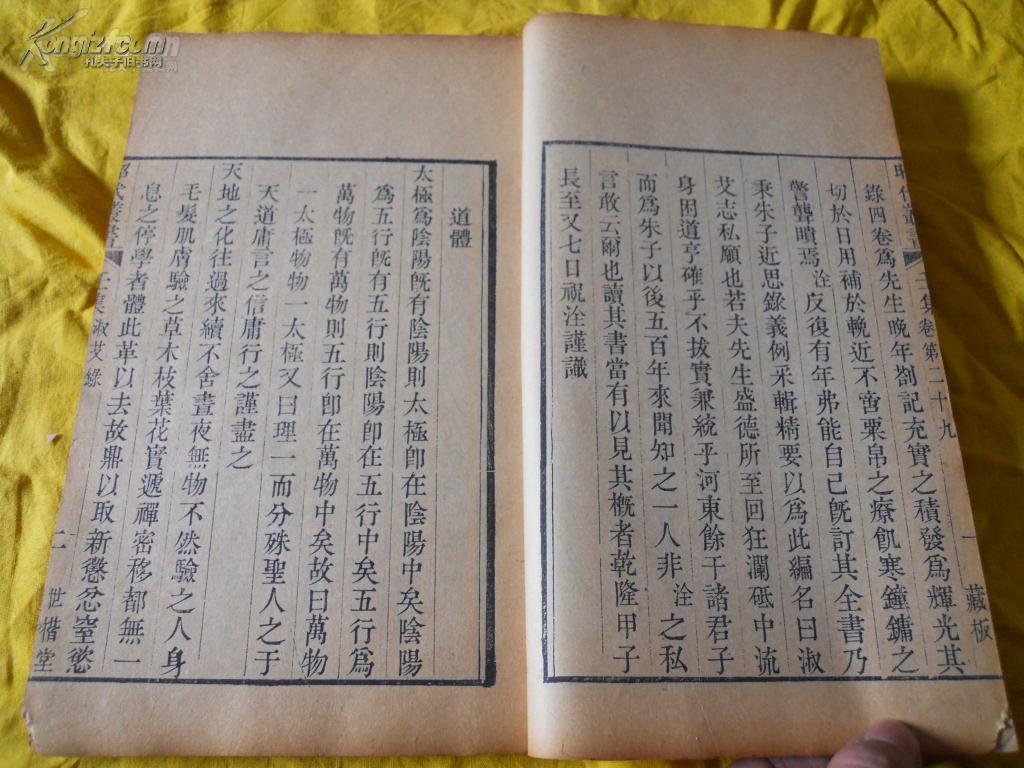 錄四卷爲先生晚年劄記充實之積發爲輝光其
切於日用補於輓近不啻粟帛之療飢寒鐘鏞之
警聾瞶焉淦反復有年弗能自已旣訂其全書乃
秉朱子近思錄義例采輯精要以爲此編名曰淑
艾志私願也若夫先生盛德所至回狂瀾砥中流
身困道亨確乎不拔實兼統乎河東餘干諸君子
而爲朱子以後五百年來聞知之一人非淦之私
言敢云爾也讀其書當有以見其槪者乾隆甲子
長至又七日祝淦謹識
卷第二十九
一
藏板
道體
太極爲陰陽旣有陰陽則太極卽在陰陽中矣陰陽
爲五行旣有五行則陰陽卽在五行中矣五行爲
萬物旣有萬物則五行卽在萬物中矣故曰萬物
一太極物物一太極又曰理一而分殊聖人之于
天道庸言之信庸行之謹盡之
天地之化往過來續不舍晝夜無物不然驗之人身
毛髮肌膚驗之草木枝葉花實遞禪密移都無一
息之停學者體此革以去故鼎以取新懲忿窒慾
淑艾錄
二
世楷堂
Kongfz.com
孔夫子旧书网